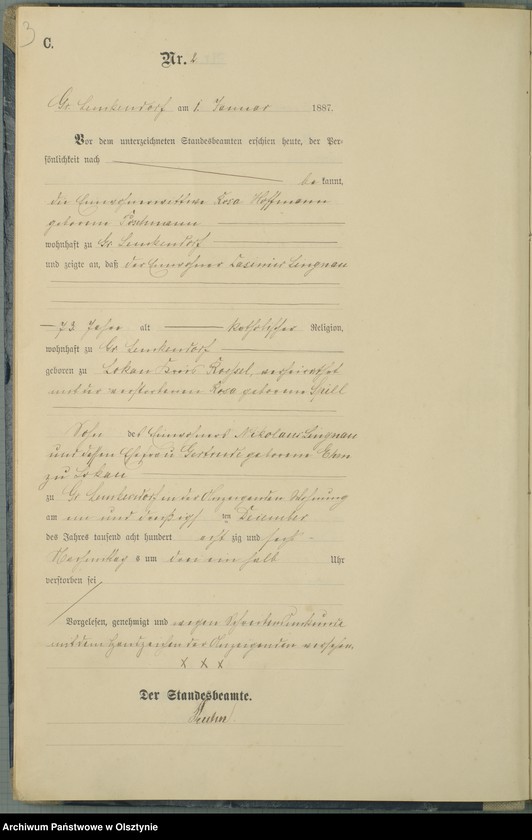 3
C.
Nr. 2
Gr. Lemkendorf am 1. Januar 1887.
Vor dem unterzeichneten Standesbeamten erschien heute, der Per-
sönlichkeit nach
be kannt,
die Einwohnerwittwe Rosa Hoffmann
geborene Poschmann
wohnhaft zu Gr. Lemkendorf
und zeigte an, daß der Einwohner Casimir Lengnau
73 Jahre alt katholischer Religion,
wohnhaft zu Gr. Lemkendorf
geboren zu Lokau Kreis Roessel, verheirathet
mit der verstorbenen Rosa geborene
Sohn des Einwohners Nikolaus Lengnau
und dessen Ehefrau Gertrude geborene
zu Lokau
zu Gr. Lemkendorf in der Anzeigenden Wohnung
am ein und dreißigsten Dezember
des Jahres tausend acht hundert acht zig und sechs
Nachmittags um drei ein halb Uhr
verstorben sei
Vorgelesen, genehmigt und wegen Schreibensunkunde
mit dem Handzeichen der Anzeigenden versehen.
X X X
Der Standesbeamte.
Archiwum Państwowe w Olsztynie